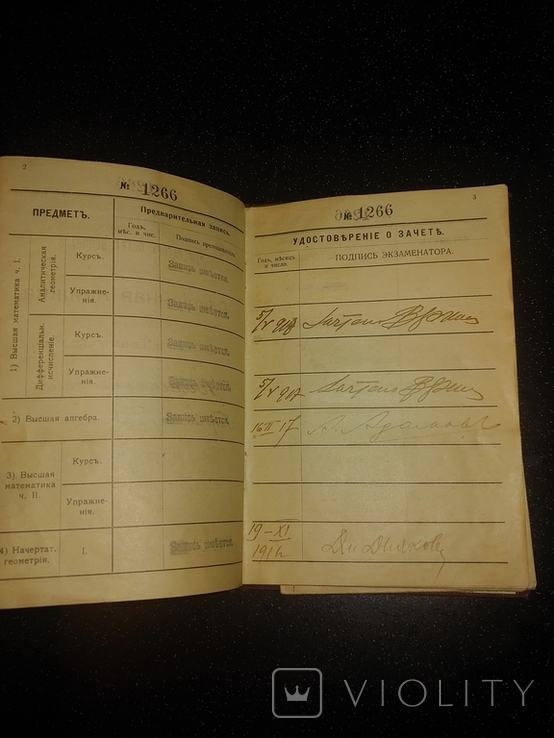 2
№ 1266
ПРЕДМЕТЪ.
Предварительная запись.
Годъ, мѣс. и чис.
Подпись преподавателя.
1) Высшая математика ч. I.
Аналитическая геометрія.
Курсъ.
Запись имѣется.
Упражне-
нія.
Запись имѣется.
Дифференціальн. исчисленіе.
Курсъ.
Запись имѣется.
Упражне-
нія.
Запись имѣется.
2) Высшая алгебра.
Запись имѣется.
3) Высшая
математика
ч. II.
Курсъ.
Упражне-
нія.
4) Начертат.
геометрія.
I.
Запись имѣется.
3
№ 1266
УДОСТОВѢРЕНІЕ О ЗАЧЕТѢ.
Годъ, мѣсяцъ
и число.
ПОДПИСЬ ЭКЗАМЕНАТОРА.
5/V
5/V
16 II 17
19 – XI
1916
VIOLITY